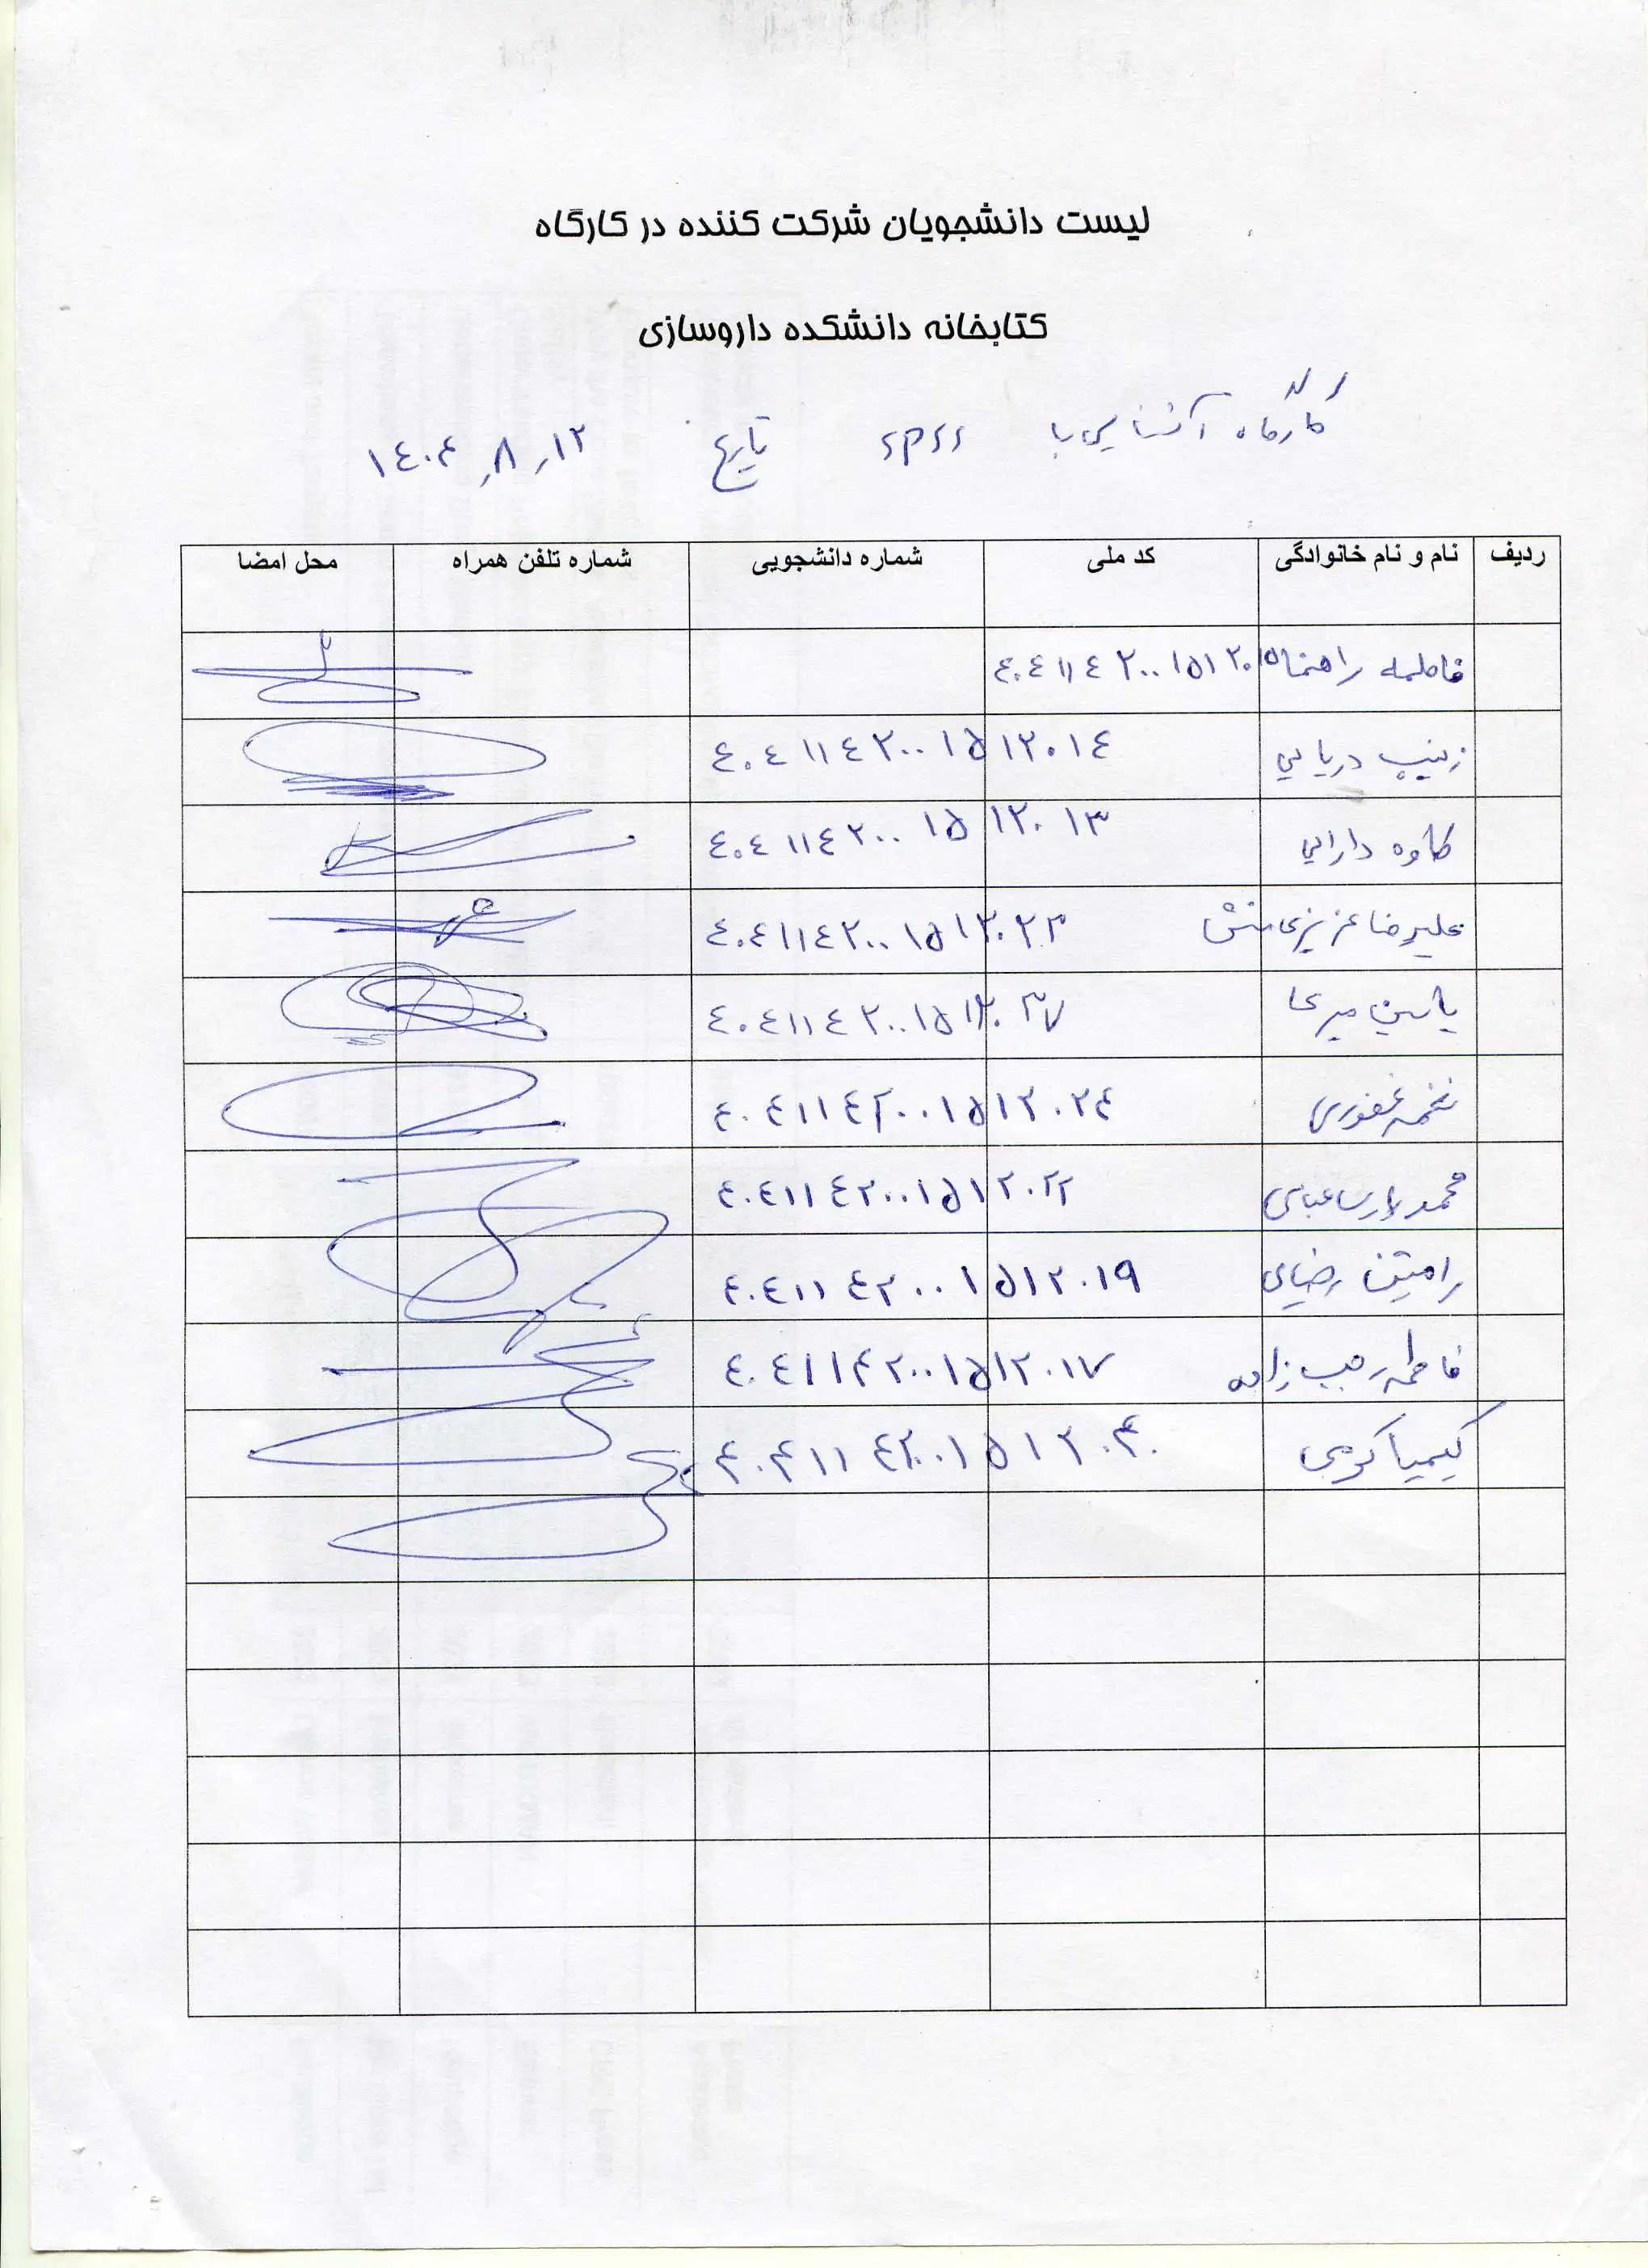 لیست دانشجویان شرکت کننده در کارگاه
کتابخانه دانشکده داروسازی
کارگاه آشنایی با spss تاریخ ۱۴۰۴,۸,۱۲
ردیف نام و نام خانوادگی کد ملی شماره دانشجویی شماره تلفن همراه محل امضا
فاطمه راهنما ۴۰۴۱۱۴۲۰۰۱۵۱۲۰۱۵
زینب دریایی ۴۰۴۱۱۴۲۰۰۱۵۱۲۰۱۴
کاوه دارایی ۴۰۴۱۱۴۲۰۰۱۵۱۲۰۱۳
علیرضا عزیزی منش ۴۰۴۱۱۴۲۰۰۱۵۱۲۰۲۳
یاسین ۴۰۴۱۱۴۲۰۰۱۵۱۲۰۳۷
نغمه غفوری ۴۰۴۱۱۴۲۰۰۱۵۱۲۰۲۴
محمد پارسا عباسی ۴۰۴۱۱۴۲۰۰۱۵۱۲۰۲۲
رامتین رضایی ۴۰۴۱۱۴۲۰۰۱۵۱۲۰۱۹
فاطمه رجب زاده ۴۰۴۱۱۴۲۰۰۱۵۱۲۰۱۷
کیمیا کرمی ۴۰۴۱۱۴۲۰۰۱۵۱۲۰۴۰